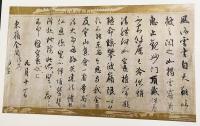 風信雲書自天翔臨
披之閲之如揭雲霧兼
恵止觀妙門頂戴供養
不知攸厝已冷伏惟
法體何如空海推常擬
隨命躋攀彼嶺限以少
願不能東西今思与我金蘭
及室山集會一處量商仏
法大事因縁共建法幢報
仏恩徳望不憚煩勞蹔
降赴此院此所望々々忩々
不具釋空海状上
九月十一日
東嶺金蘭